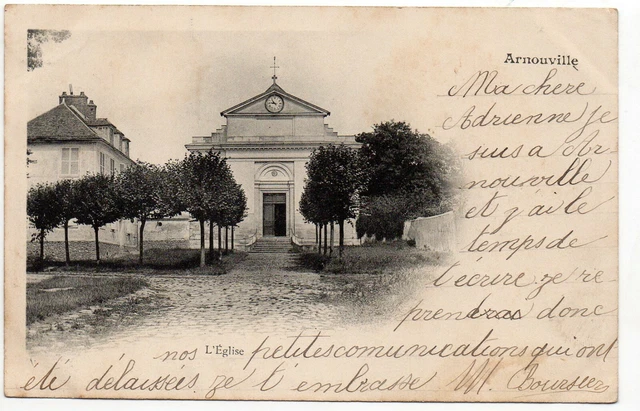 Arnouville
Ma chere
Adrienne je
suis a Ar-
nouville
et j'ai le
temps de
t'écrire je re
prendras donc
nos L'Église petites comunications qui ont
été délaissées je t'embrasse M. Boursier